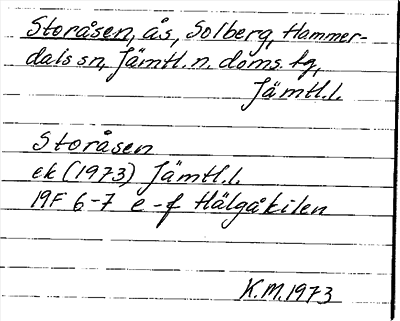 Storåsen, ås, Solberg, Hammer-
dals sn, Jämtl. n. doms. tg,
Jämtl. l.
Storåsen
ek (1973) Jämtl. l.
19F 6-7 e-f Hälgåkilen
K.M. 1973